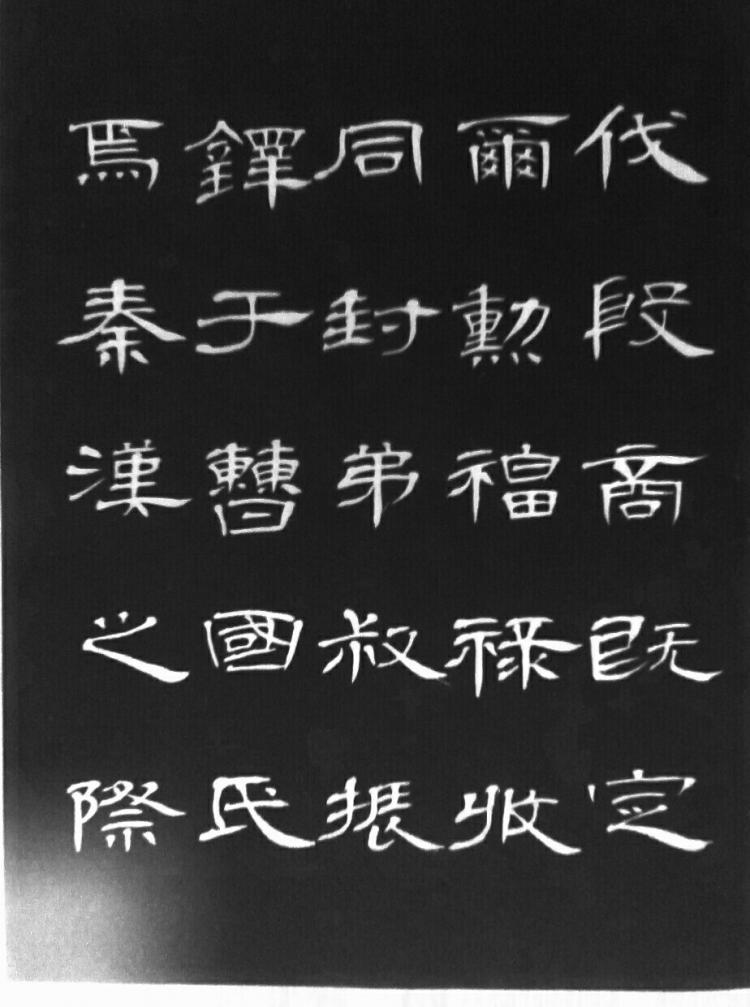 伐殷商既定
爾勲福祿攸
同封弟叔振
鐸于曹國氏
焉秦漢之際